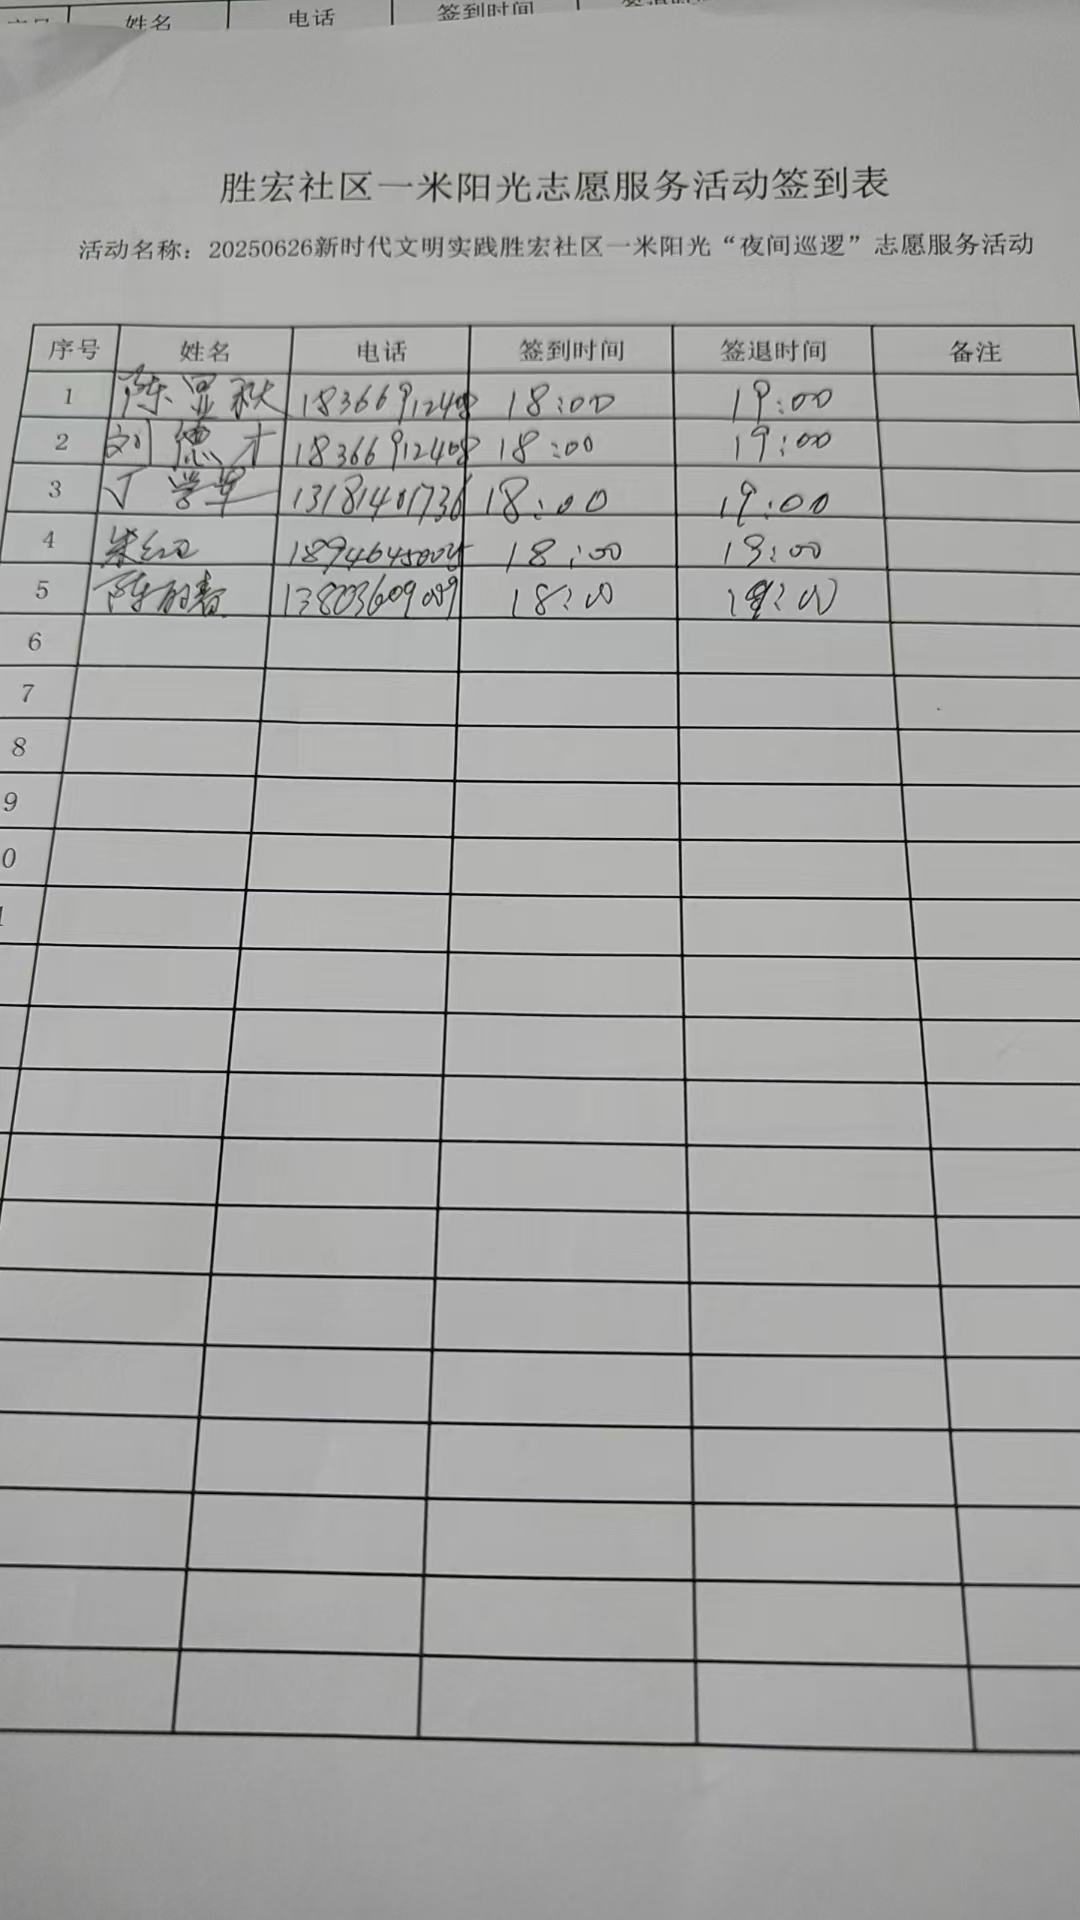 姓名 电话 签到时间
胜宏社区一米阳光志愿服务活动签到表
活动名称：20250626新时代文明实践胜宏社区一米阳光“夜间巡逻”志愿服务活动
序号 姓名 电话 签到时间 签退时间 备注
1 陈显秋 18366912408 18:00 19:00
2 刘德才 18366912408 18:00 19:00
3 丁学军 13181401736 18:00 19:00
4 朱红卫 18:00 19:00
5 18:00 19:00
6
7
8
9
0
1